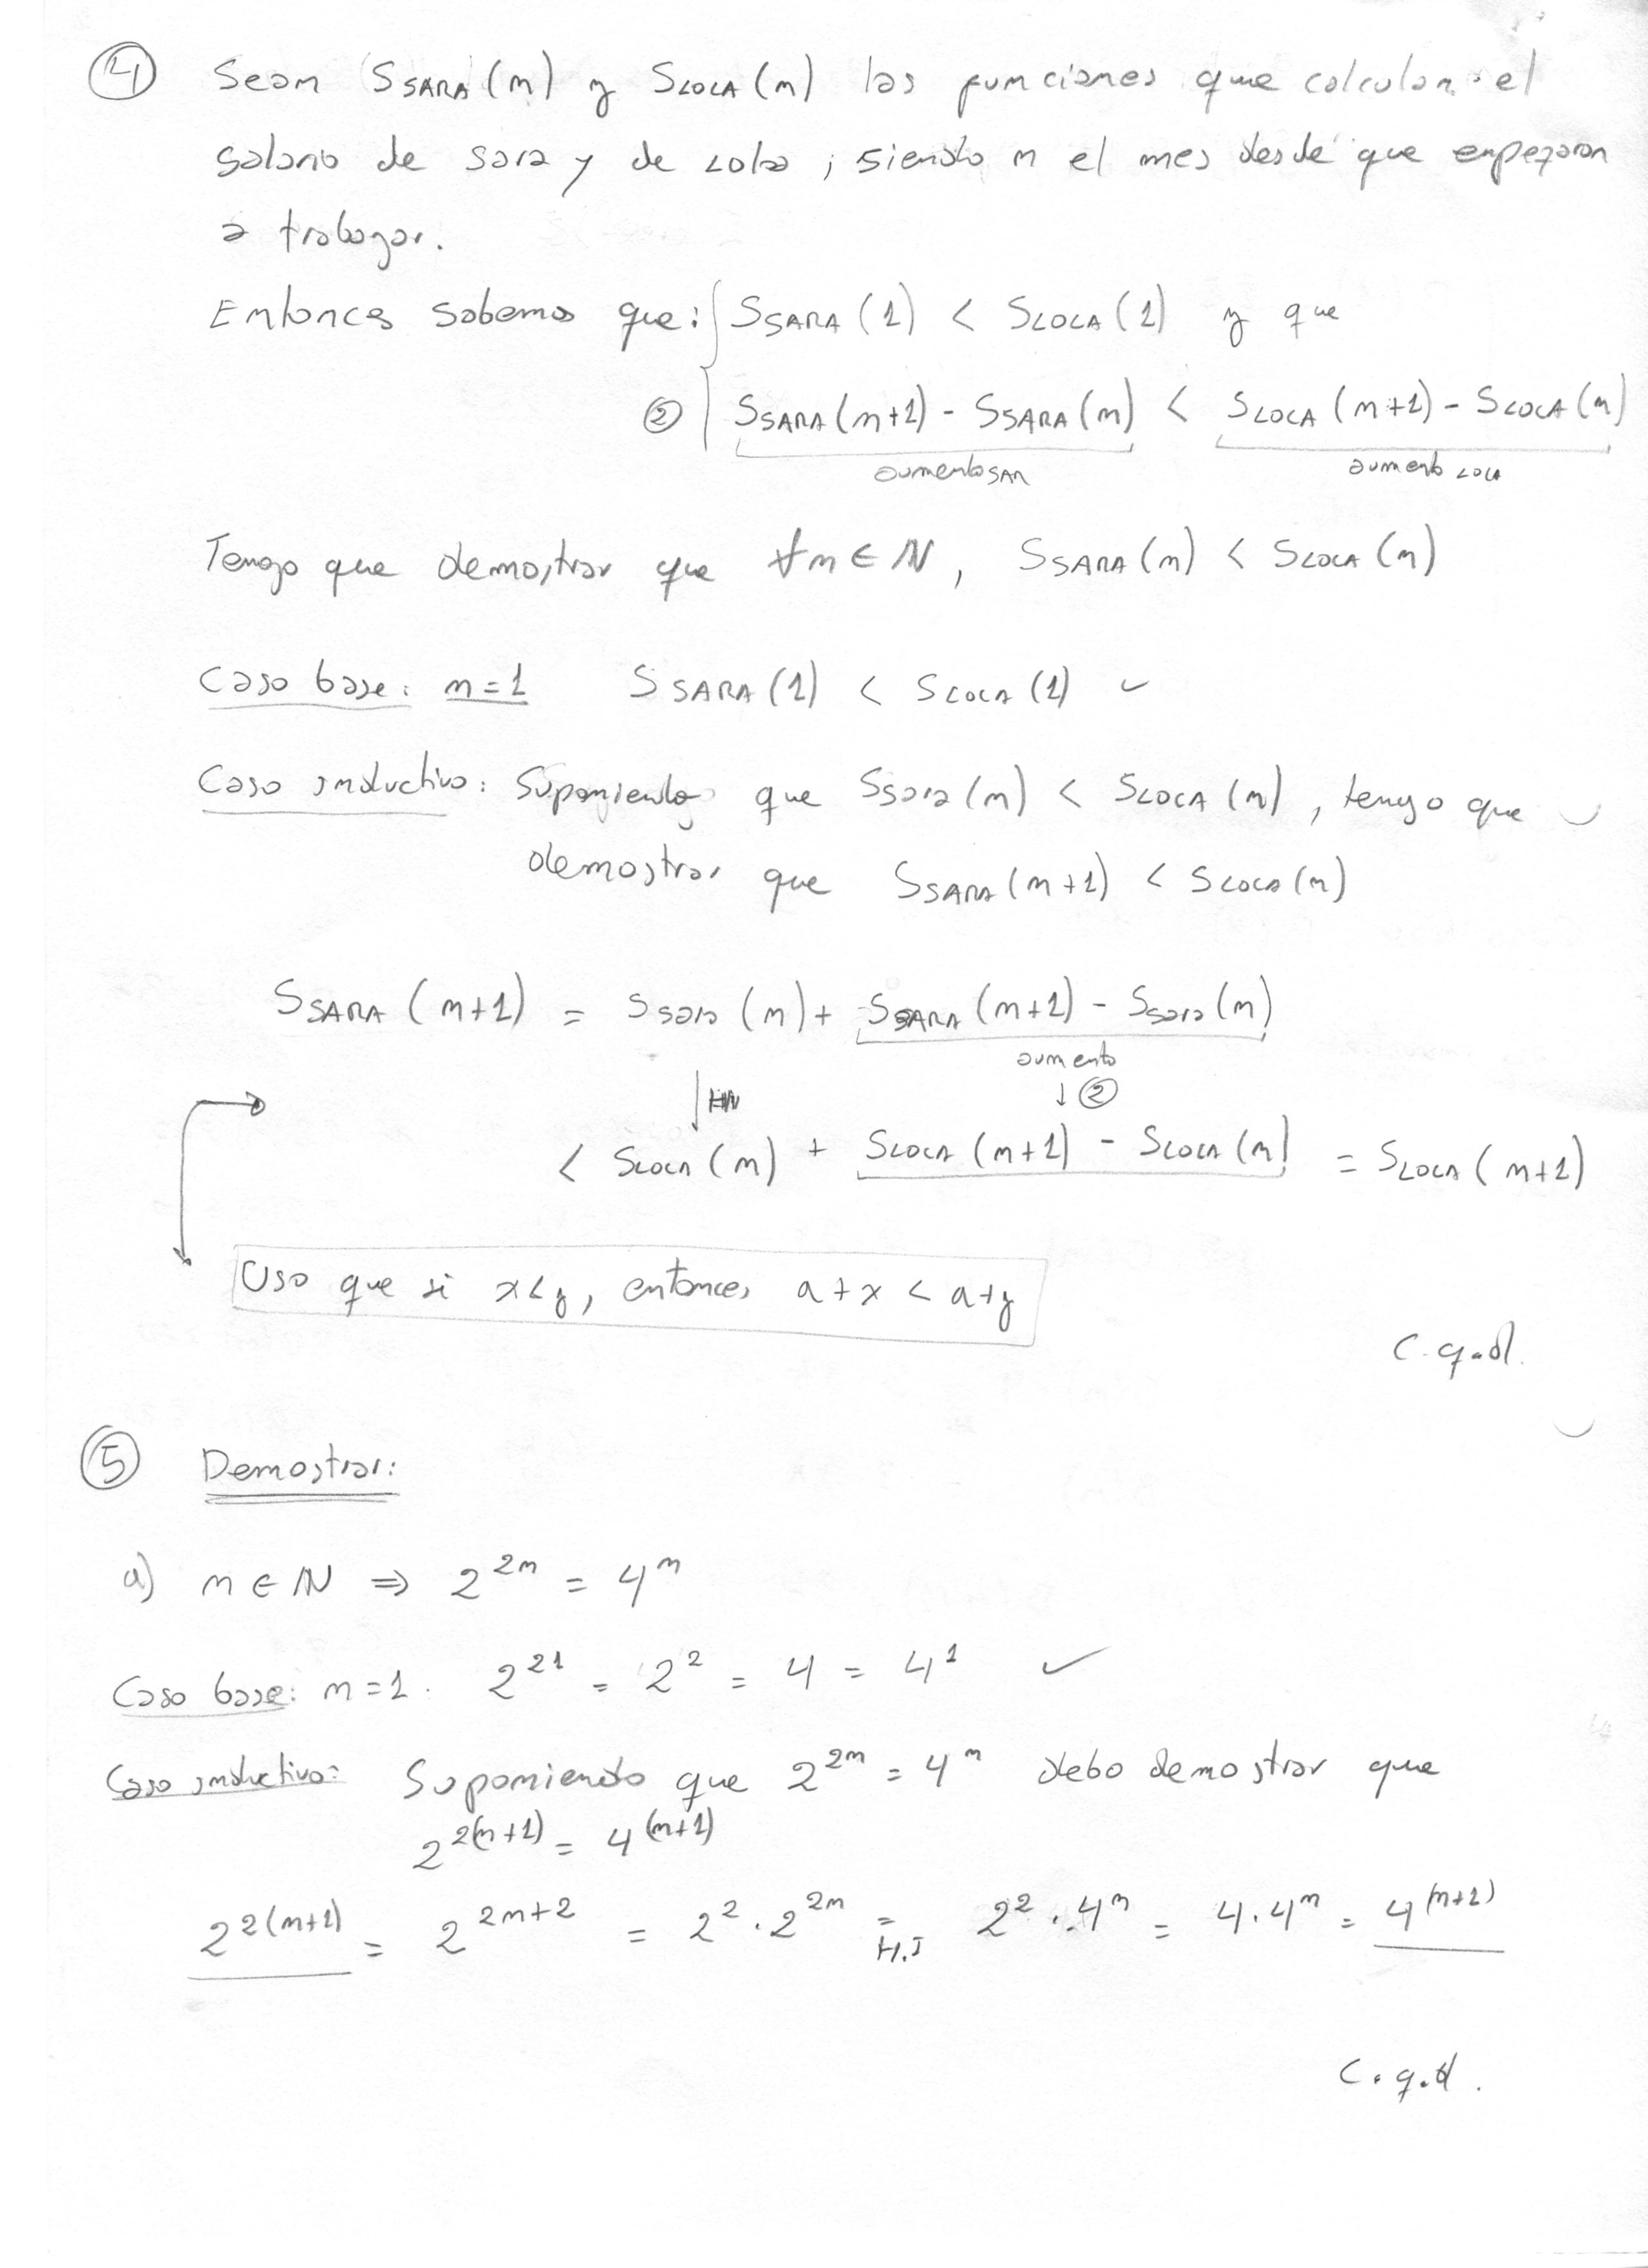 ④ Sean S_SARA(n) y S_LOLA(n) las funciones que calculan el
salario de sara y de Lola, siendo n el mes desde que empezaron
a trabajar.
Entonces sabemos que: { S_SARA(1) < S_LOLA(1) y que
② S_SARA(n+1) - S_SARA(n) < S_LOLA(n+1) - S_LOLA(n)
aumento SAR aumento LOLA
Tengo que demostrar que ∀n ∈ N, S_SARA(n) < S_LOLA(n)
Caso base: n=1 S_SARA(1) < S_LOLA(1) ✓
Caso inductivo: Suponiendo que S_sara(n) < S_LOLA(n), tengo que
demostrar que S_SARA(n+1) < S_LOLA(n)
S_SARA(n+1) = S_sara(n) + S_SARA(n+1) - S_sara(n)
aumento
↓ ②
< S_LOLA(n) + S_LOLA(n+1) - S_LOLA(n) = S_LOLA(n+1)
Uso que si x<y, entonces a+x < a+y
C.q.d.
⑤ Demostrar:
a) n ∈ N ⇒ 2^{2n} = 4^n
Caso base: n=1. 2^{21} = 2^2 = 4 = 4^1 ✓
Caso inductivo: Suponiendo que 2^{2n} = 4^n debo demostrar que
2^{2(n+1)} = 4^{(n+1)}
2^{2(n+1)} = 2^{2n+2} = 2^2 · 2^{2n} = H.I 2^2 · 4^n = 4 · 4^n = 4^{(n+1)}
C.q.d.